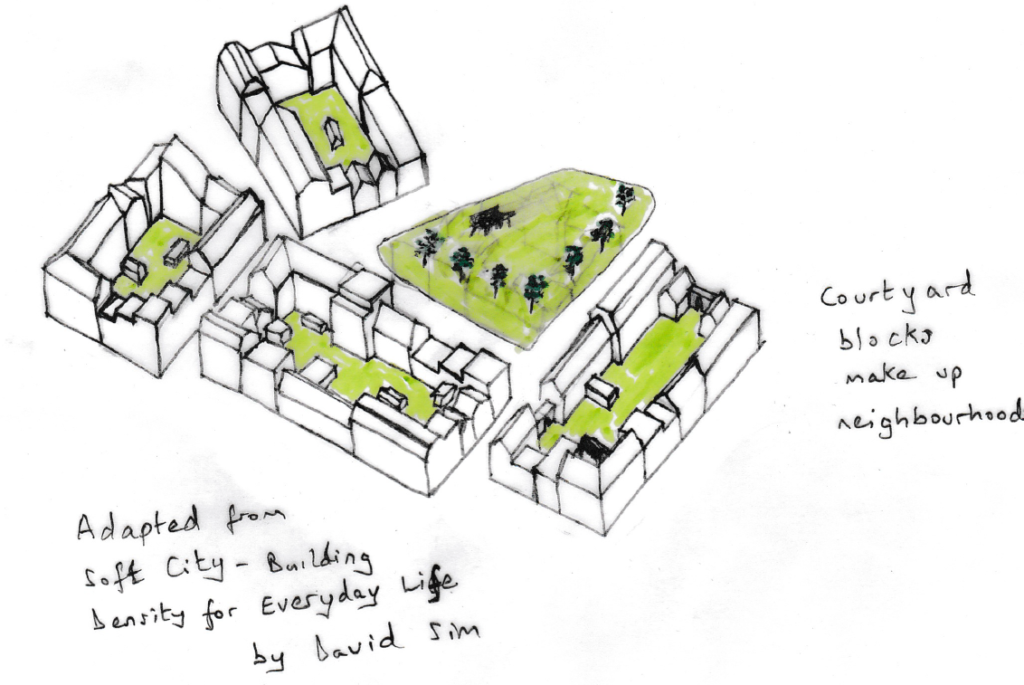 Courtyard
blocks
make up
neighbourhood
Adapted from
Soft City - Building
Density for Everyday Life
by David Sim